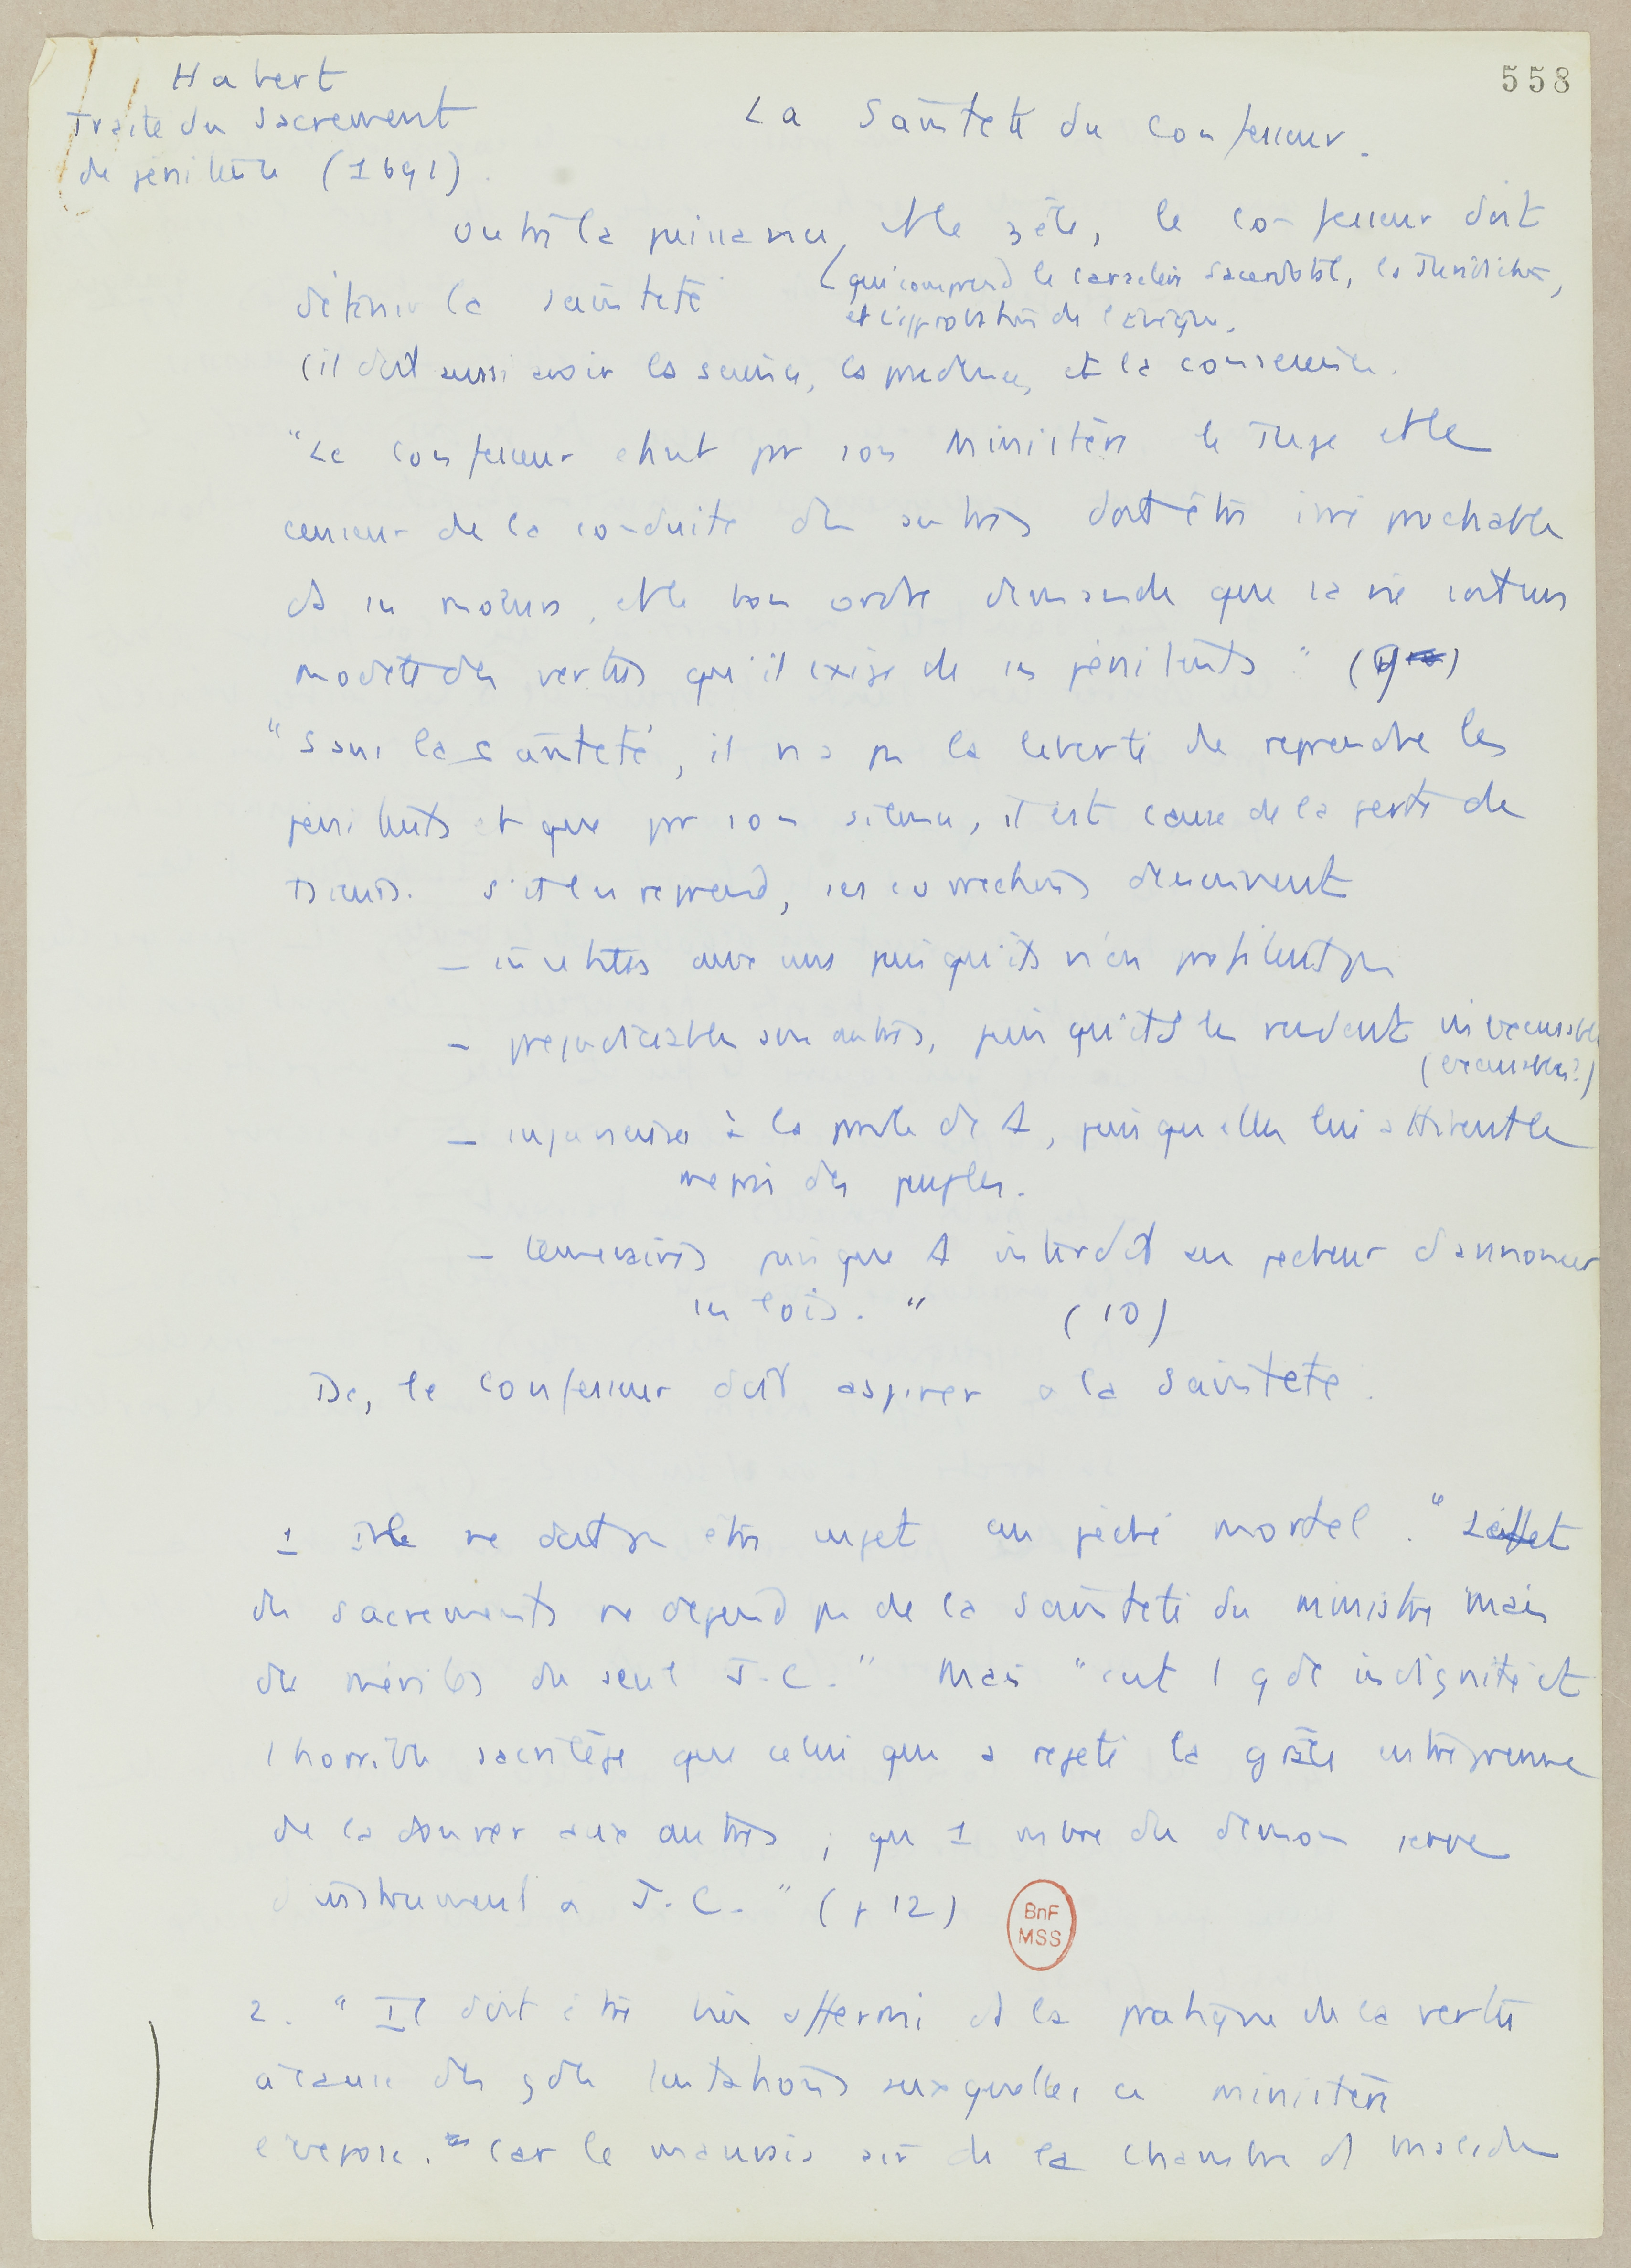 558
Habert
Traité du sacrement
de pénitence (1691).
La Sainteté du confesseur.
Outre la puissance, et le zèle, le confesseur doit
(qui comprend le caractère sacerdotal, la Juridiction,
détenir la sainteté
et l'approbation de l'évêque.
(il doit aussi avoir la science, la prudence, et la
"Le confesseur étant par son Ministère le Juge et le
censeur de la conduite des autres doit être irréprochable
ds ses mœurs, et le bon ordre demande que sa vie soit un
modèle des vertus qu'il exige de ses pénitents" (9)
"Sans la sainteté, il n'a pas la liberté de reprendre les
pénitents et que par son silence, il est cause de la perte de
S'il les reprend, ses corrections deviennent
- inutiles aux uns puisqu'ils n'en profitent pas
- préjudiciables aux autres, puisqu'ils les rendent inexcusables
(excusables?)
- injurieuses à la parole de D, puisqu'elles lui attirent le
mépris des peuples.
- téméraires puisque D interdit au pécheur d'annoncer
ses lois." (10)
Dc, le confesseur doit aspirer à la Sainteté.
1 Il ne doit pas être sujet au péché mortel. "L'effet
des sacrements ne dépend pas de la Sainteté du ministre mais
des mérites du seul J.C." Mais "c'est 1 gde indignité et
1 horrible sacrilège que celui qui a rejeté la grâce entreprenne
de la donner aux autres ; qu'1 mbre du démon serve
d'instrument à J.C." (p 12)
BnF
MSS
2. "Il doit être bien affermi ds la pratique de la vertu
à cause des gdes tentations auxquelles ce ministère
l'expose." Car le mauvais air de la chambre d'1 malade